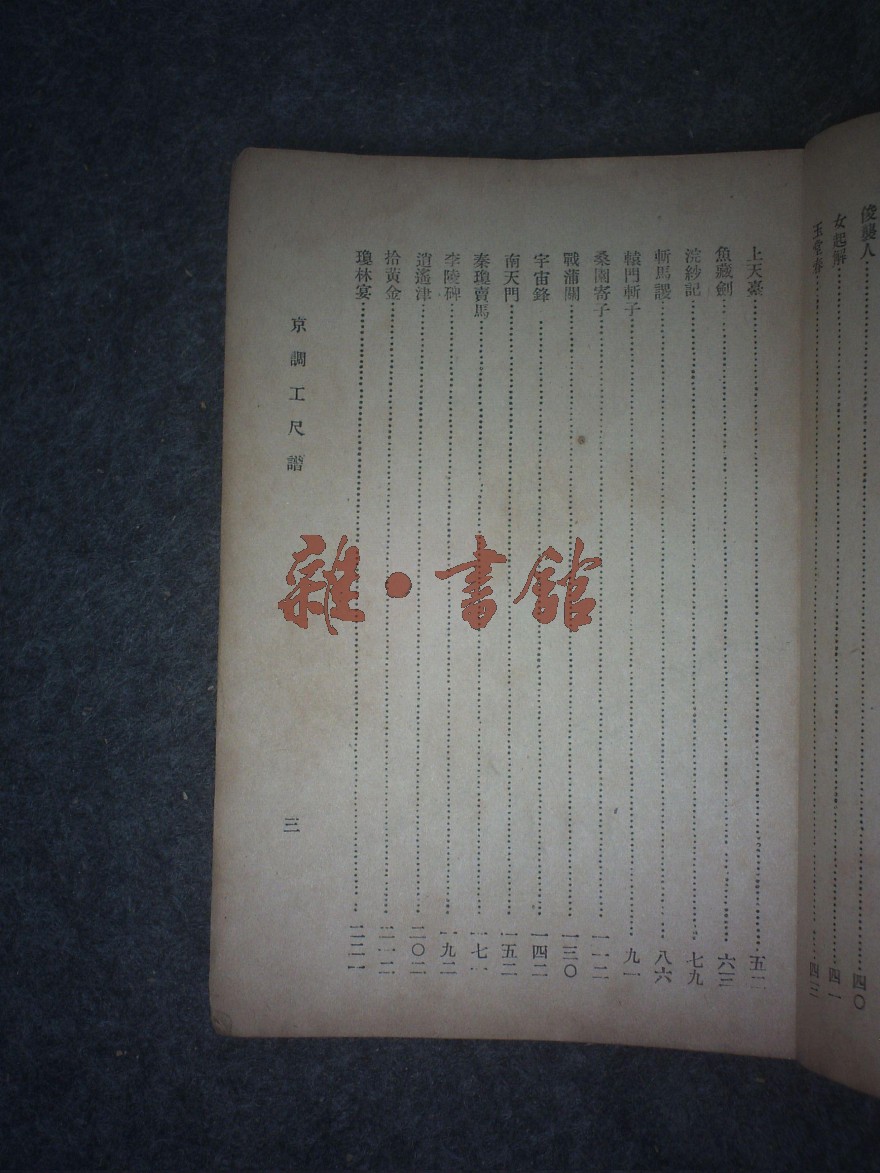 俊襲人……四〇
女起解……四一
玉堂春……四三
上天臺……五二
魚藏劍……六三
浣紗記……七九
斬馬謖……八六
轅門斬子……九一
桑園寄子……一一二
戰蒲關……一三〇
宇宙鋒……一四二
南天門……一五二
秦瓊賣馬……一七一
李陵碑……一九二
逍遙津……二〇二
拾黃金……二一二
瓊林宴……二二一
京調工尺譜
三
雜·書館